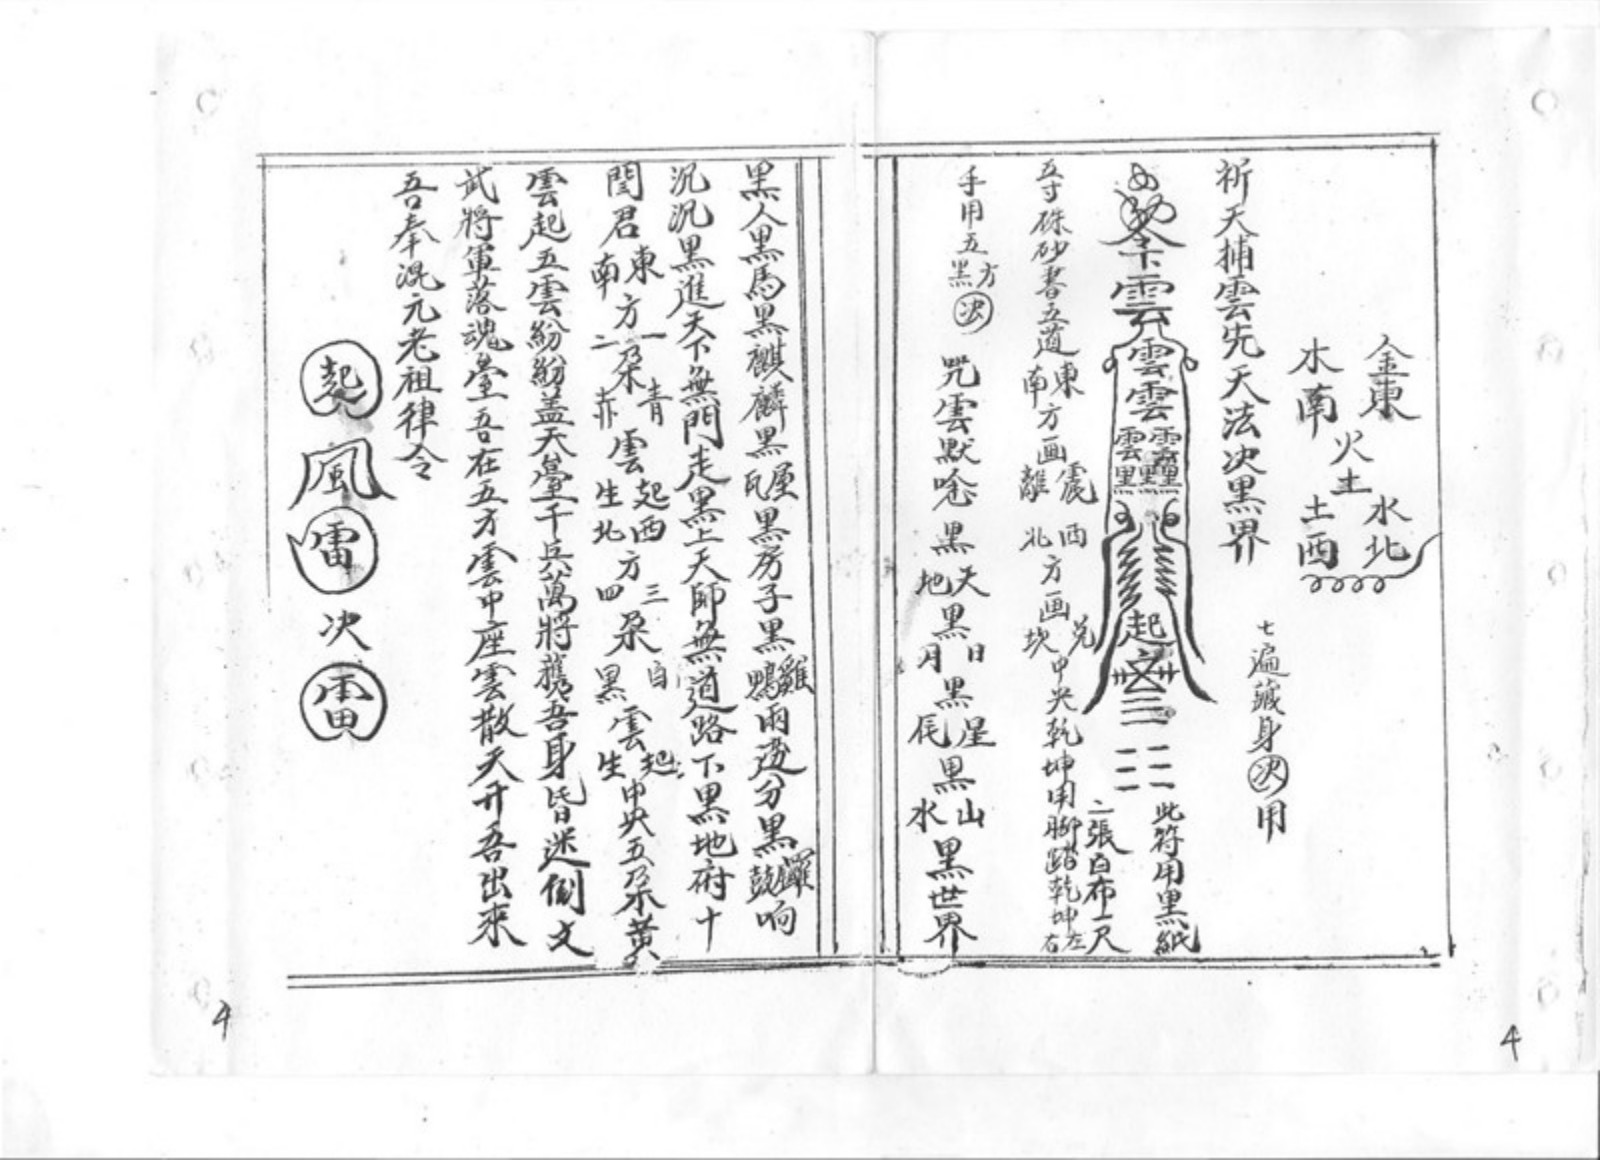 金東 水北
火土
木南 土西
祈天捕雲先天法决黑界
七遍藏身决用
令雲雲雲雲雲黑黑黑起
此符用黑紙
二張白布一尺
五寸硃砂書五道東南方画震離西北方画兌坎中央乾坤用腳踏乾坤左右
手用五方黑决
咒雲默唸黑天地黑日月黑星辰黑山水黑世界
黑人黑馬黑麒麟黑屋瓦黑房子黑雞鴨兩邊分黑鑼鼓响
沉沉黑進天下無門走黑上天師無道路下黑地府十
閆君東南方一二朵青赤雲起生西北方三四朵白黑雲起生中央五朵黄
雲起五雲紛紛盖天臺千兵萬將護吾身皆迷倒文
武將軍落魂臺吾在五方雲中座雲散天开吾出來
吾奉混元老祖律令
起風雷决雷
4
4